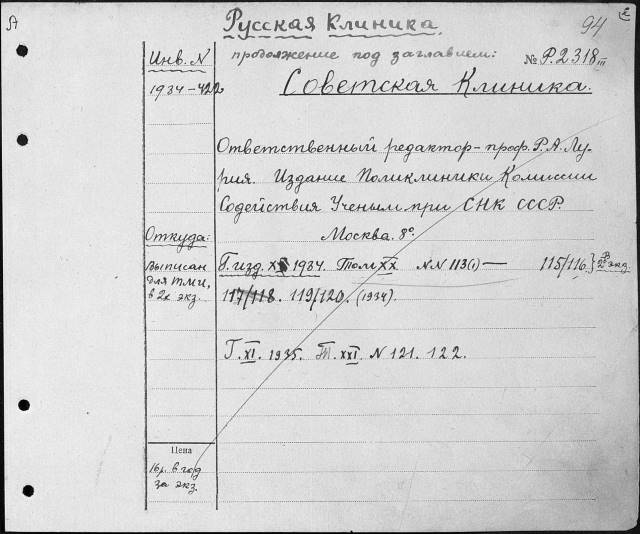 А
Русская Клиника.
94
Инв. N
продолжение под заглавием:
№ Р.2318 III
1934-422
Советская Клиника.
Ответственный редактор - проф. Р. А. Лу-
рия. Издание Поликлиники Комиссии
Содействия Ученым при СНК СССР.
Откуда:
Москва. 8°.
выписан
для ТМИ,
в 2х экз.
Г. изд. 1934. Том XX. NN 113(1) — 115/116. } 2 экз.
117/118. 119/120. (1934).
Г. XI. 1935. Т. XXI. N 121. 122.
Цена
16р. в год
за экз.